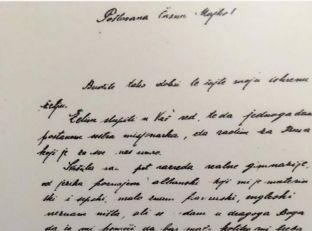 Poštovana Časna Majko!
Budite tako dobri te čujte moju iskrenu
želju.
Želim stupiti u Vaš red, te da jednoga dana
postanem sestra misjonarka, da radim za Isusa
koji je za sve nas umro.
Svršila sam pet razreda realne gimnazije,
od jezika poznajem albanski koji mi je materin
ski i srpski, malo znam francuski, engleski
neznam ništa, ali se dam u dragoga Boga
da će mi pomoći da bar malo